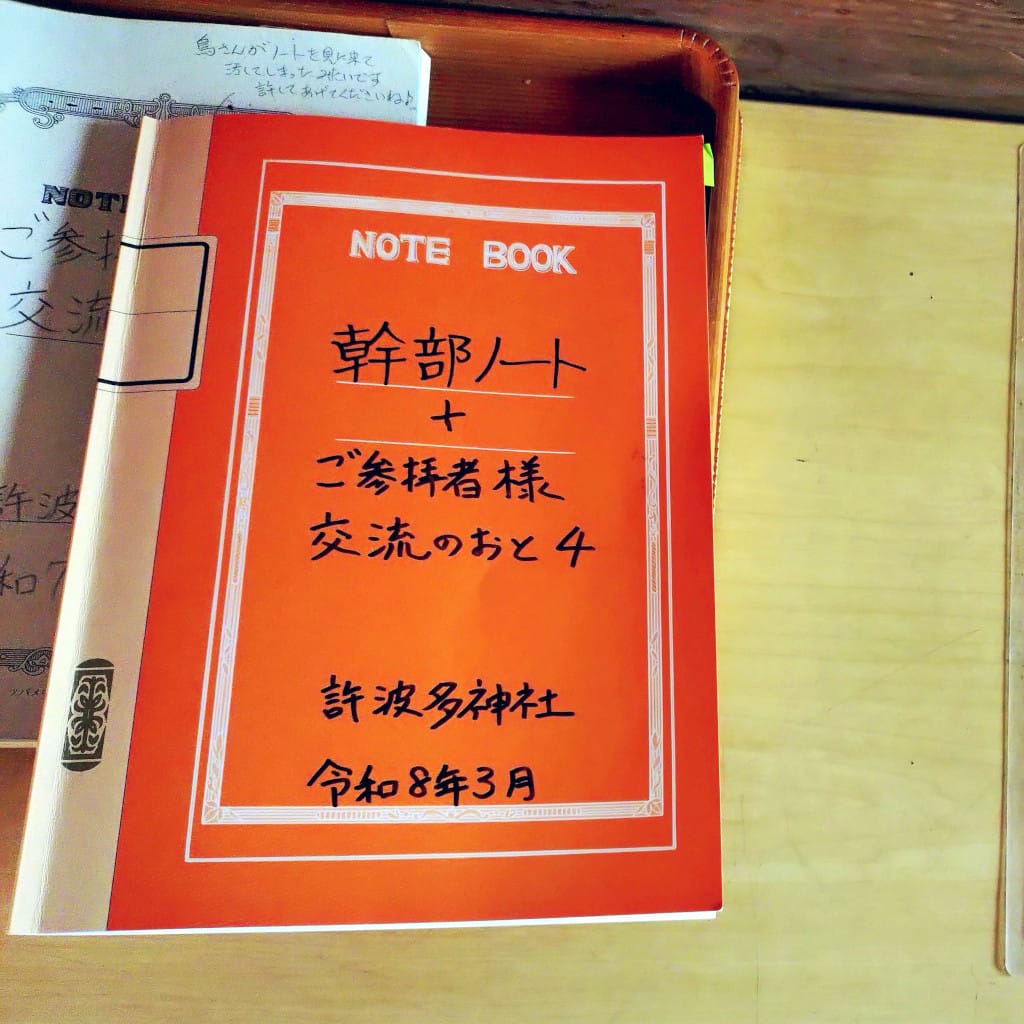 鳥さんがノートを見に来て
汚してしまったみたいです
許してあげてくださいねよ
NOTE BOOK
幹部ノート
+
ご参拝者様
交流のおと4
許波多神社
令和8年3月
NOT
ご参拝
交流
許波
和7
ツバメ